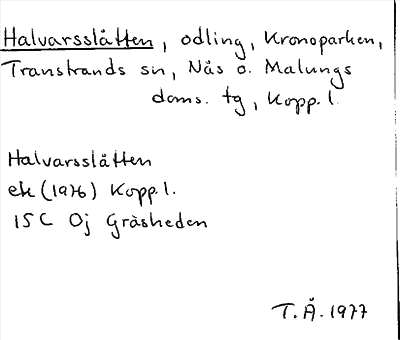 Halvarsslåtten, odling, Kronoparken,
Transtrands sn, Nås o. Malungs
doms. tg, Kopp. l.
Halvarsslåtten
ek (1976) Kopp. l.
15C Oj Gräsheden
T. Å. 1977